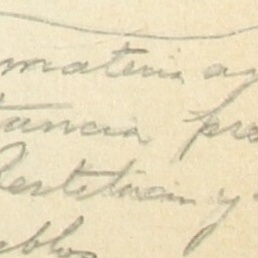 materia ag
tancia pre
Restitucion y
eblos